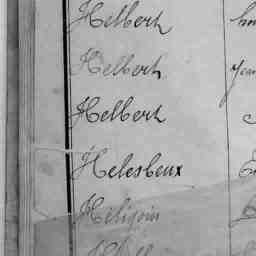 Helbert
Helbert
Helbert
Helesbeux
Héligoin